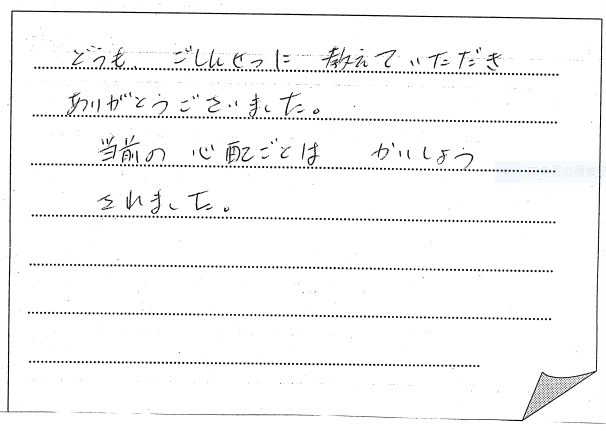 どうも、ごしんせつに 教えていただき
ありがとうございました。
当前の 心配ごとは かいしょう
されました。